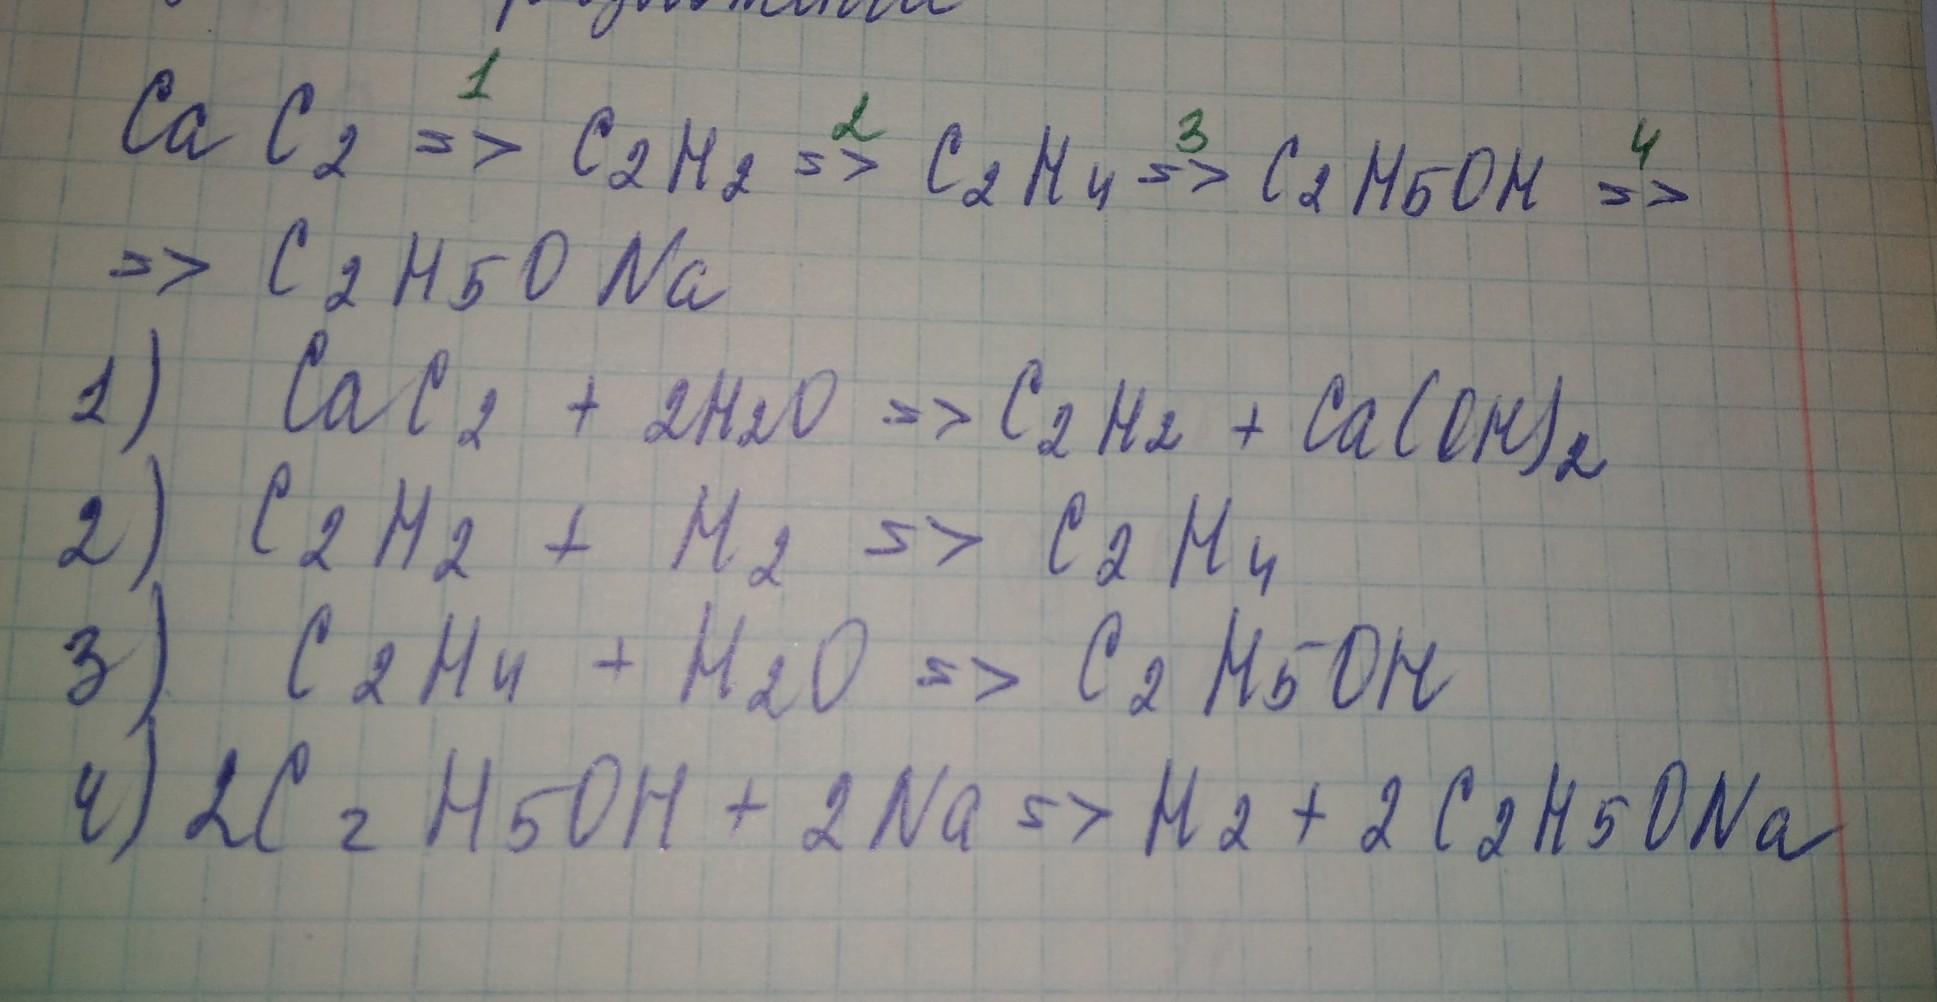 CaC2 => C2H2 => C2H4 => C2H5OH =>
1 2 3 4
=> C2H5ONa
1) CaC2 + 2H2O => C2H2 + Ca(OH)2
2) C2H2 + H2 => C2H4
3) C2H4 + H2O => C2H5OH
4) 2C2H5OH + 2Na => H2 + 2C2H5ONa